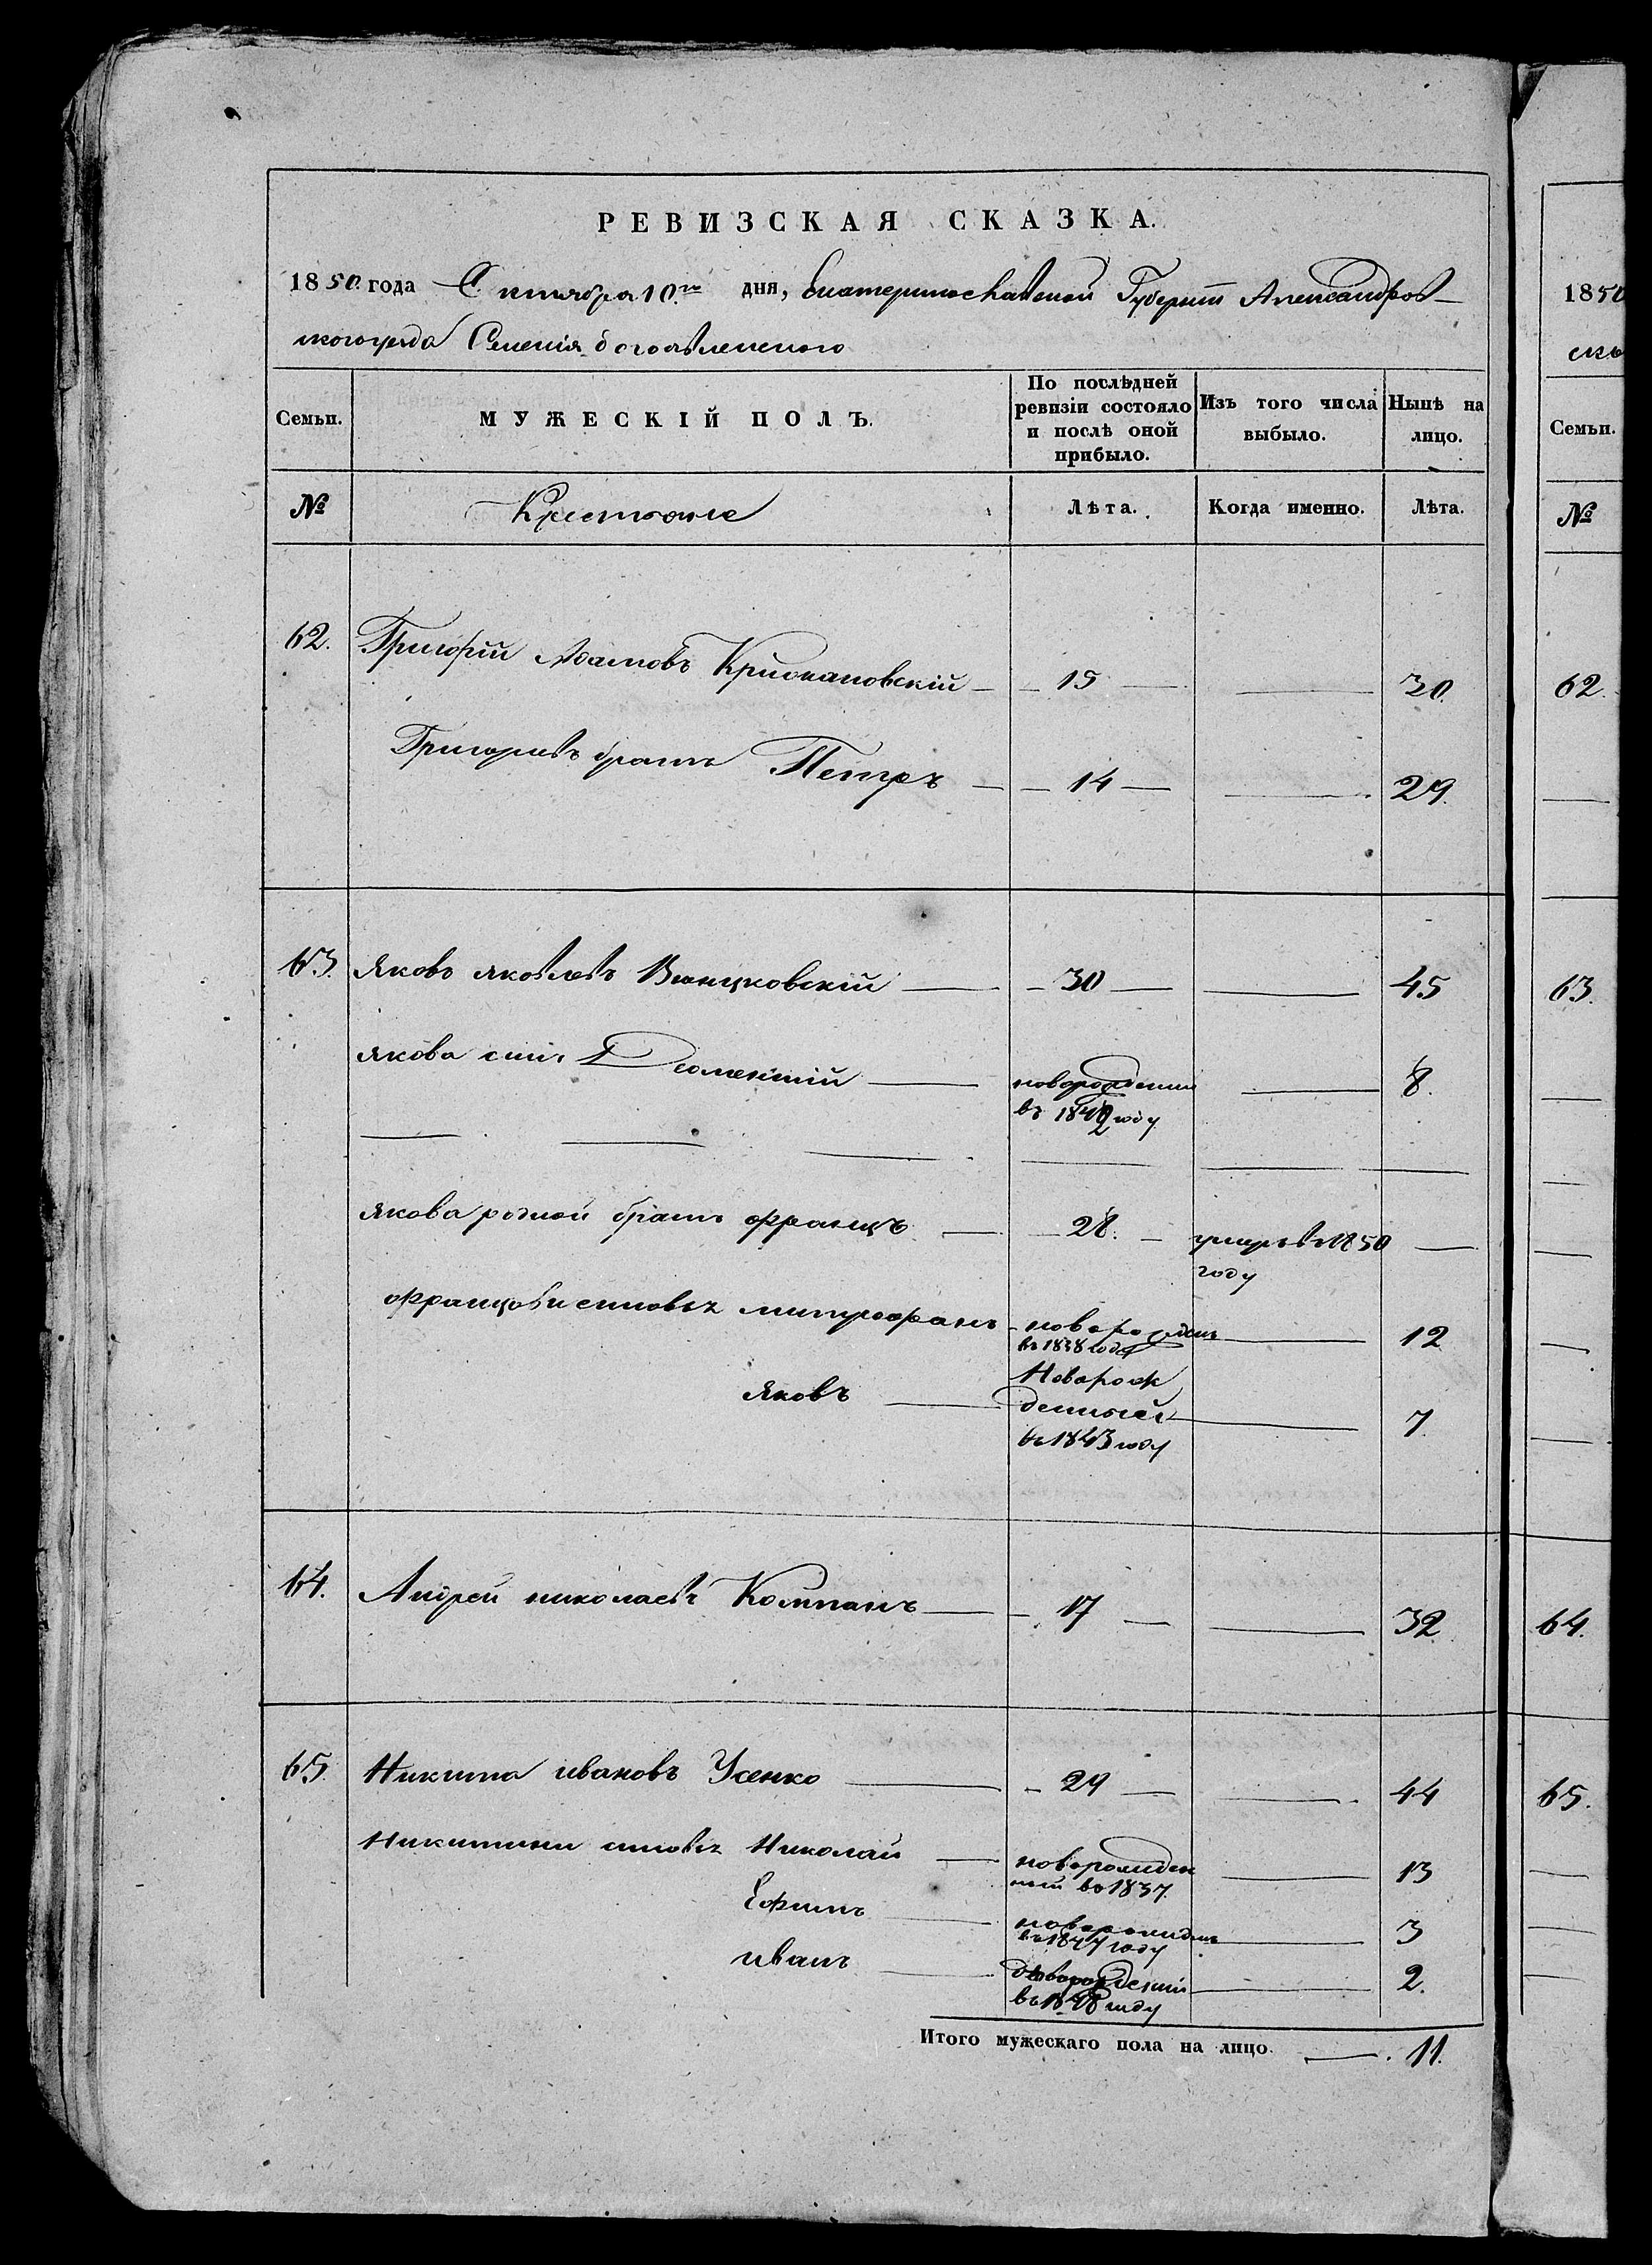 РЕВИЗСКАЯ СКАЗКА.
1850 года Сентября 10го дня, Екатеринославской Губерніи Александров-
скаго уезда Селенія Богоявленскаго
Семьи. МУЖЕСКІЙ ПОЛЪ. По послѣдней ревизіи состояло и послѣ оной прибыло. Изъ того числа выбыло. Нынѣ на лицо.
№ Крестьяне Лѣта. Когда именно. Лѣта.
62. Григорій Адамовъ — 15 — — 30.
Григорьевъ братъ Петръ — 14 — — 29.
63. Яковъ Яковлевъ — 30 — — 45
Якова сынъ — новорожденный — 8.
въ 1842 году
Якова родной братъ Францъ — 28. — умеръ въ 1850 —
году
Францовы сыновья Митрофанъ — новорожден — 12
въ 1838 году
Яковъ — Новорож
денный — 7.
въ 1843 году
64. Андрей Николаевъ Компанъ — 17 — — 32.
65. Никита Ивановъ Усенко — 29 — — 44
Никитины сыновья Николай — новорожден — 13
ный въ 1837.
Ефимъ — новорожден — 3
въ 1847 году
Иванъ — новорожденный — 2.
въ 1848 году
Итого мужескаго пола на лицо — 11.
1850
Семьи.
№
62.
63.
64.
65.